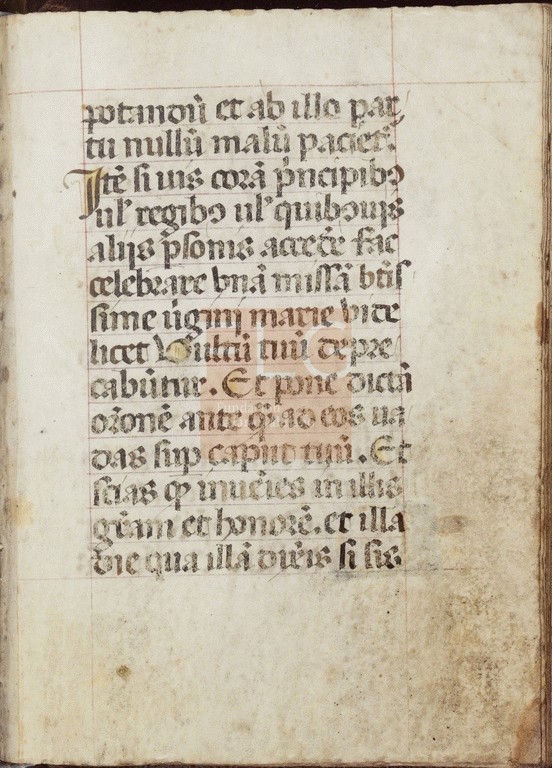 potandū et ab illo par
tu nullū malū paciet᷑.
Itē si uis corā p̄ncipibꝰ
ul᷑ regibꝰ ul᷑ quibꝰuis
alijs p̄sonis accede᷑ fac
celebrare vnā missā btīs
sime ūginis marie vide
licet Vultū tuū depre
cabūtur. Et pone dictā
or̄onē ante q̄ ad eos ua
das sup caput tuū. Et
scias ꝙ inueīes in illis
gr̄am et honorē. et illa
die qua illā dixēis si sis